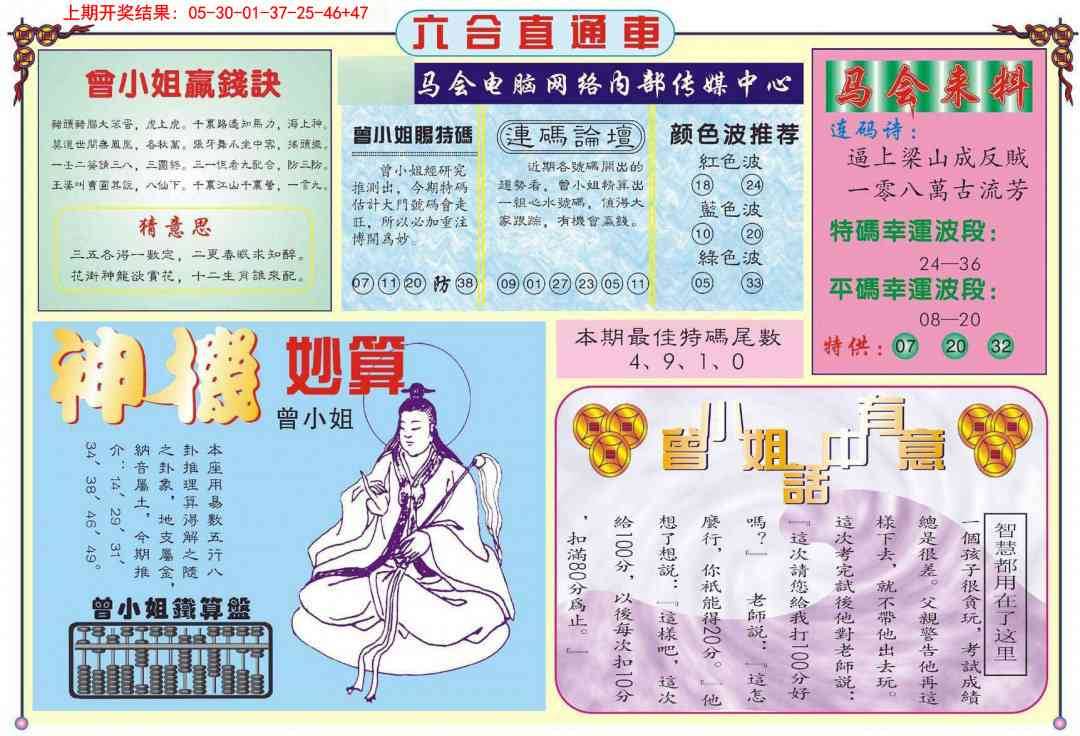 上期开奖结果：05-30-01-37-25-46+47
六合直通車
曾小姐贏錢訣
猜意思
三五各得一數定，二更春眠求知醉。
花街神龍欲賞花，十二生肖誰來配。
马会电脑网络内部传媒中心
曾小姐賜特碼
曾小姐經研究
推測出，今期特碼
估計大門號碼會走
旺，所以必加重注
博開爲妙
07 11 20 防 38
連碼論壇
近期各號碼開出的
趨勢看，曾小姐精算出
一組心水號碼，值得大
家跟踪，有機會贏錢。
09 01 27 23 05 11
颜色波推荐
紅色波
18 24
藍色波
10 20
綠色波
05 33
马会来料
连码诗：
逼上梁山成反贼
一零八萬古流芳
特碼幸運波段：
24—36
平碼幸運波段：
08—20
特供：07 20 32
神機妙算
曾小姐
本座用易數五行八
卦推理算得解之隨
之卦象，地支屬金，
納音屬土，今期推
介：14、29、31、
34、38、46、49。
曾小姐鐵算盤
本期最佳特碼尾數
4、9、1、0
曾小姐話中有意
智慧都用在了这里
一個孩子很貪玩，考試成績
總是很差。父親警告他再這
樣下去，就不帶他出去玩。
這次考完試後他對老師説：
『這次請您給我打100分好
嗎？』 老師説：『這怎
麼行，你衹能得20分。』他
想了想説：『這樣吧，這次
給100分，以後每次扣10分
，扣滿80分爲止。』